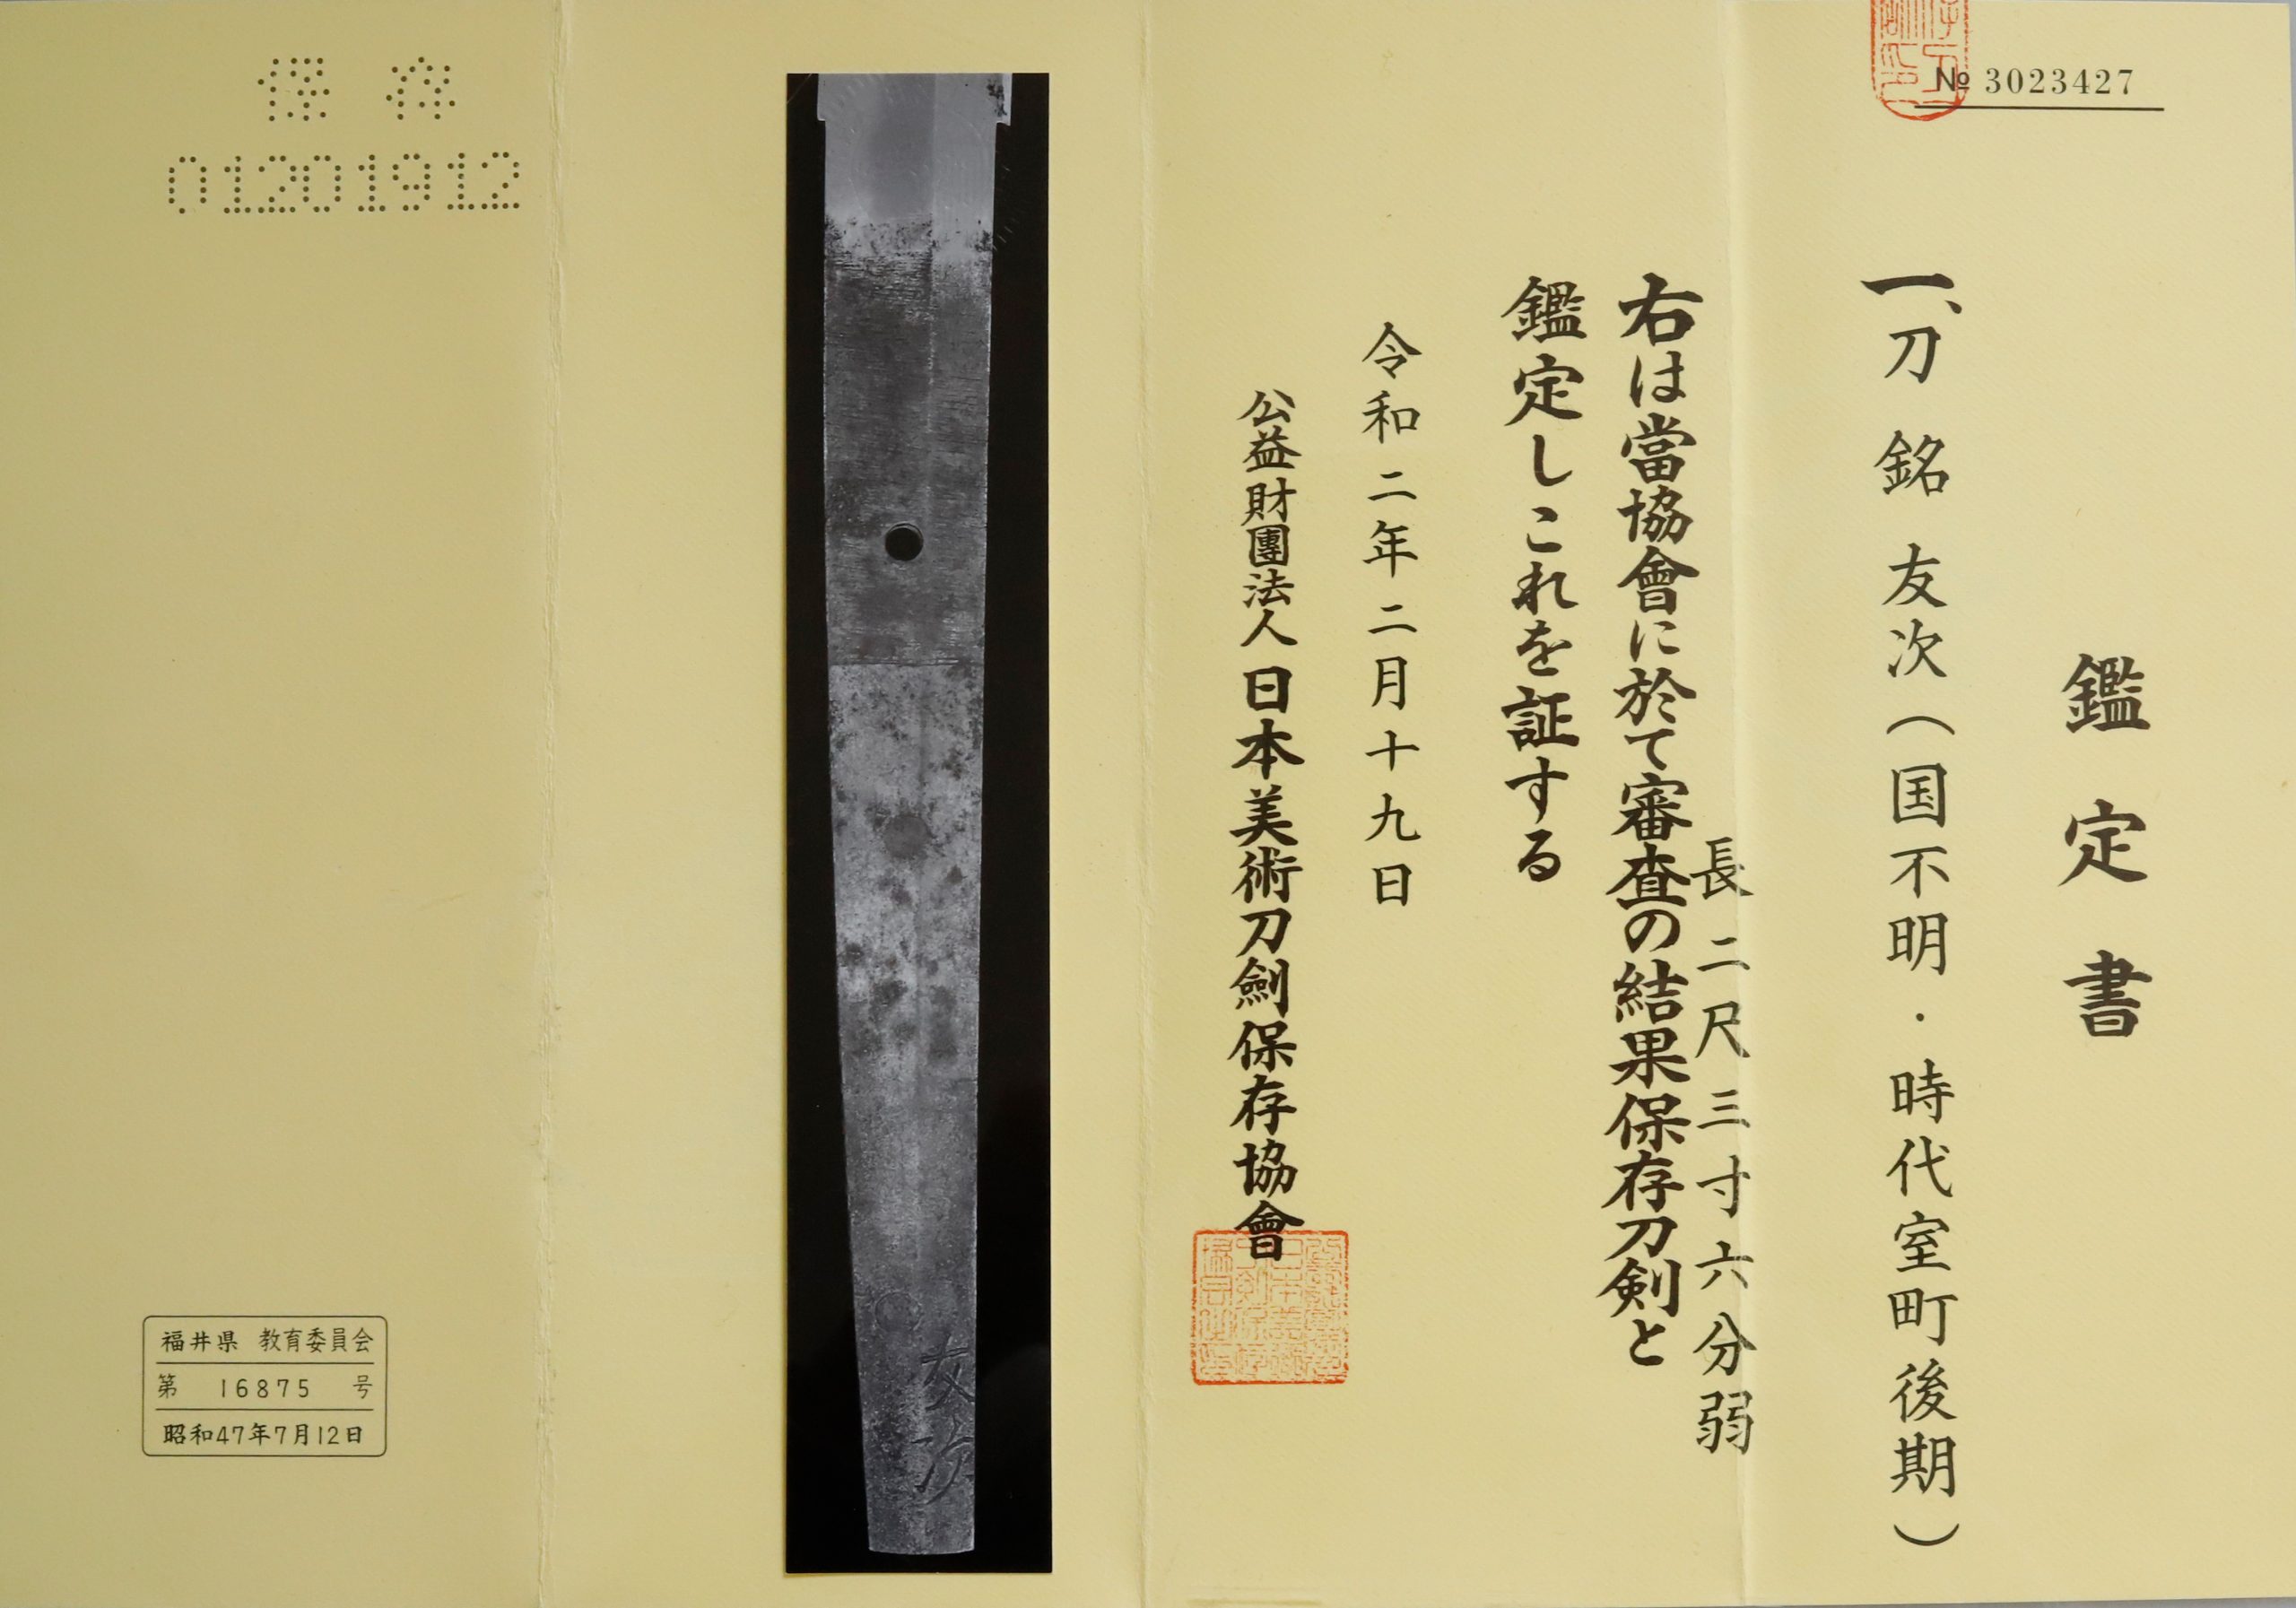 № 3023427
鑑定書
一、刀 銘 友次（国不明・時代室町後期）
長 二尺三寸六分弱
右は當協會に於て審査の結果保存刀剣と
鑑定しこれを証する
令和二年二月十九日
公益財團法人 日本美術刀劍保存協會
友次
保存
01201912
福井県 教育委員会
第 16875 号
昭和47年7月12日